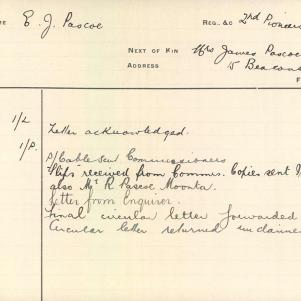 E. J. Pascoe
REG. &C 2nd Pioneer
NEXT OF KIN Mrs James Pascoe
ADDRESS 5 Beacons
1/L Letter acknowledged.
1/P. P/Cable sent Commissioners
Slip received from Comms. Copies sent
also Mr R Pascoe Moonta.
Letter from Enquirer.
Final circular letter forwarded
Circular letter returned